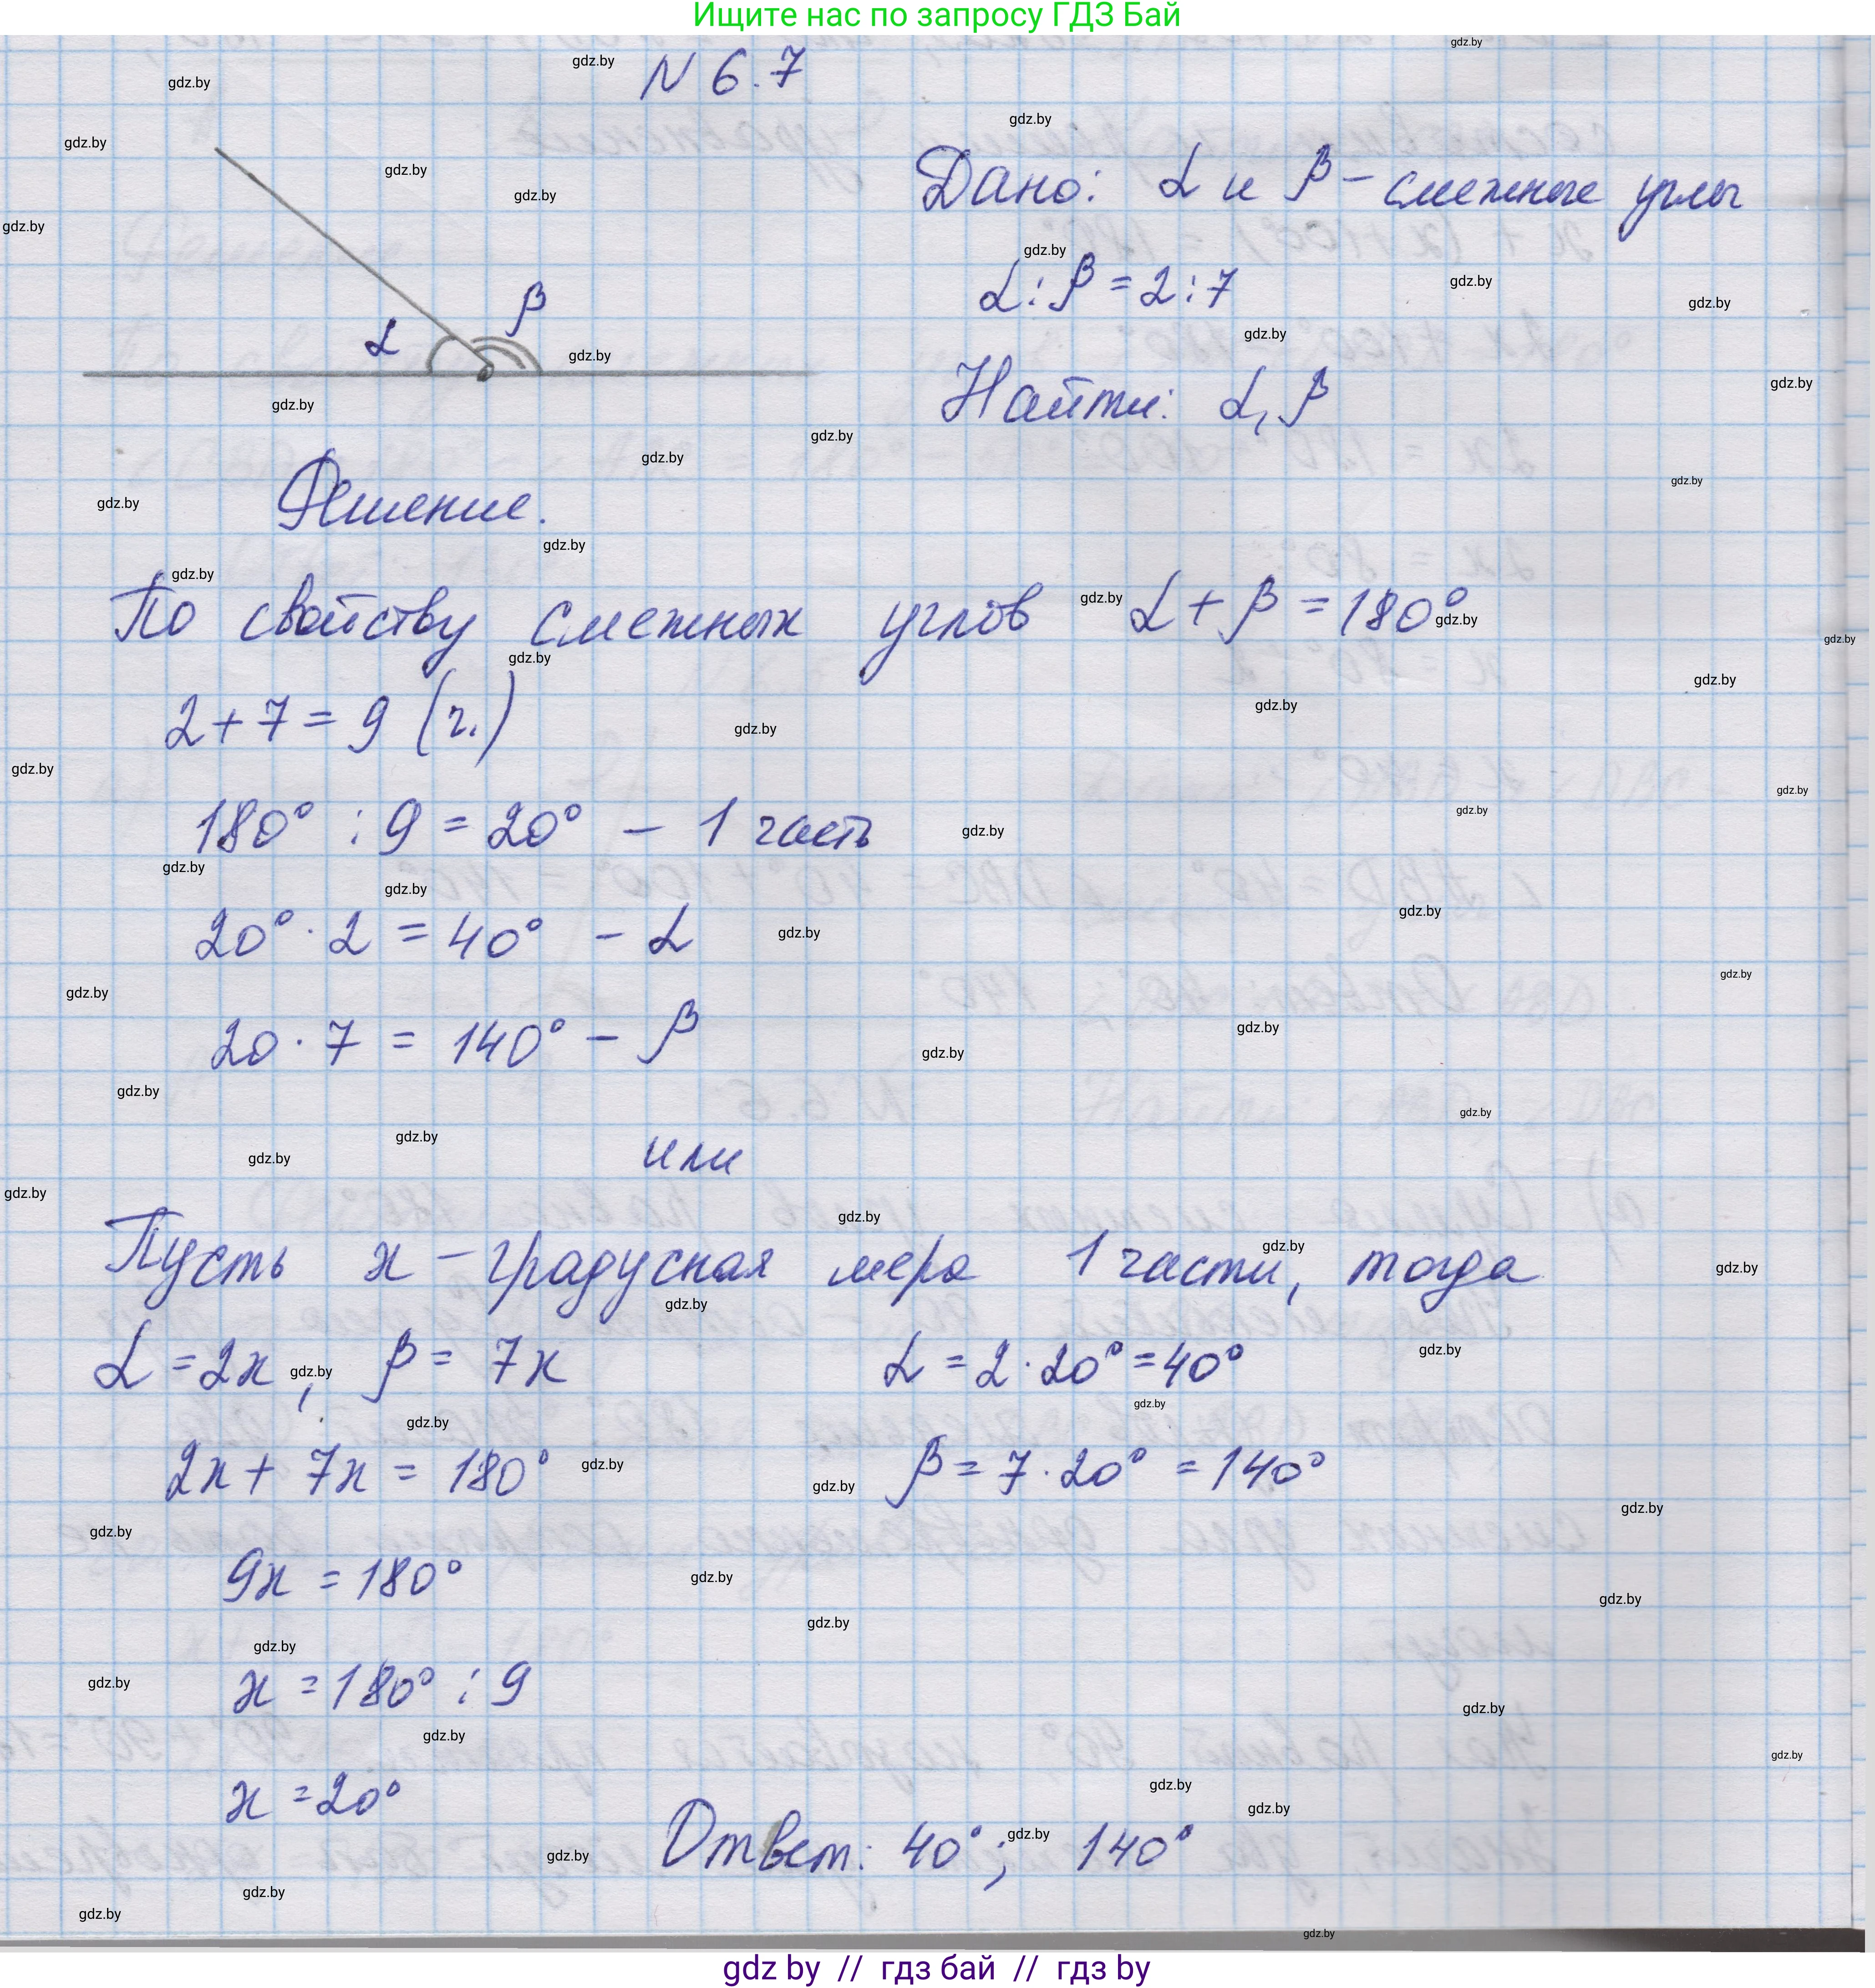 Ищите нас по запросу ГДЗ Бай
N 6.7
Дано: α и β – смежные углы
α : β = 2 : 7
Найти: α, β
α β
Решение.
По свойству смежных углов α + β = 180°
2 + 7 = 9 (ч.)
180° : 9 = 20° – 1 часть
20° · 2 = 40° – α
20 · 7 = 140° – β
или
Пусть x – градусная мера 1 части, тогда
α = 2x, β = 7x
2x + 7x = 180°
9x = 180°
x = 180° : 9
x = 20°
α = 2 · 20° = 40°
β = 7 · 20° = 140°
Ответ: 40°; 140°
gdz by // гдз бай // гдз by